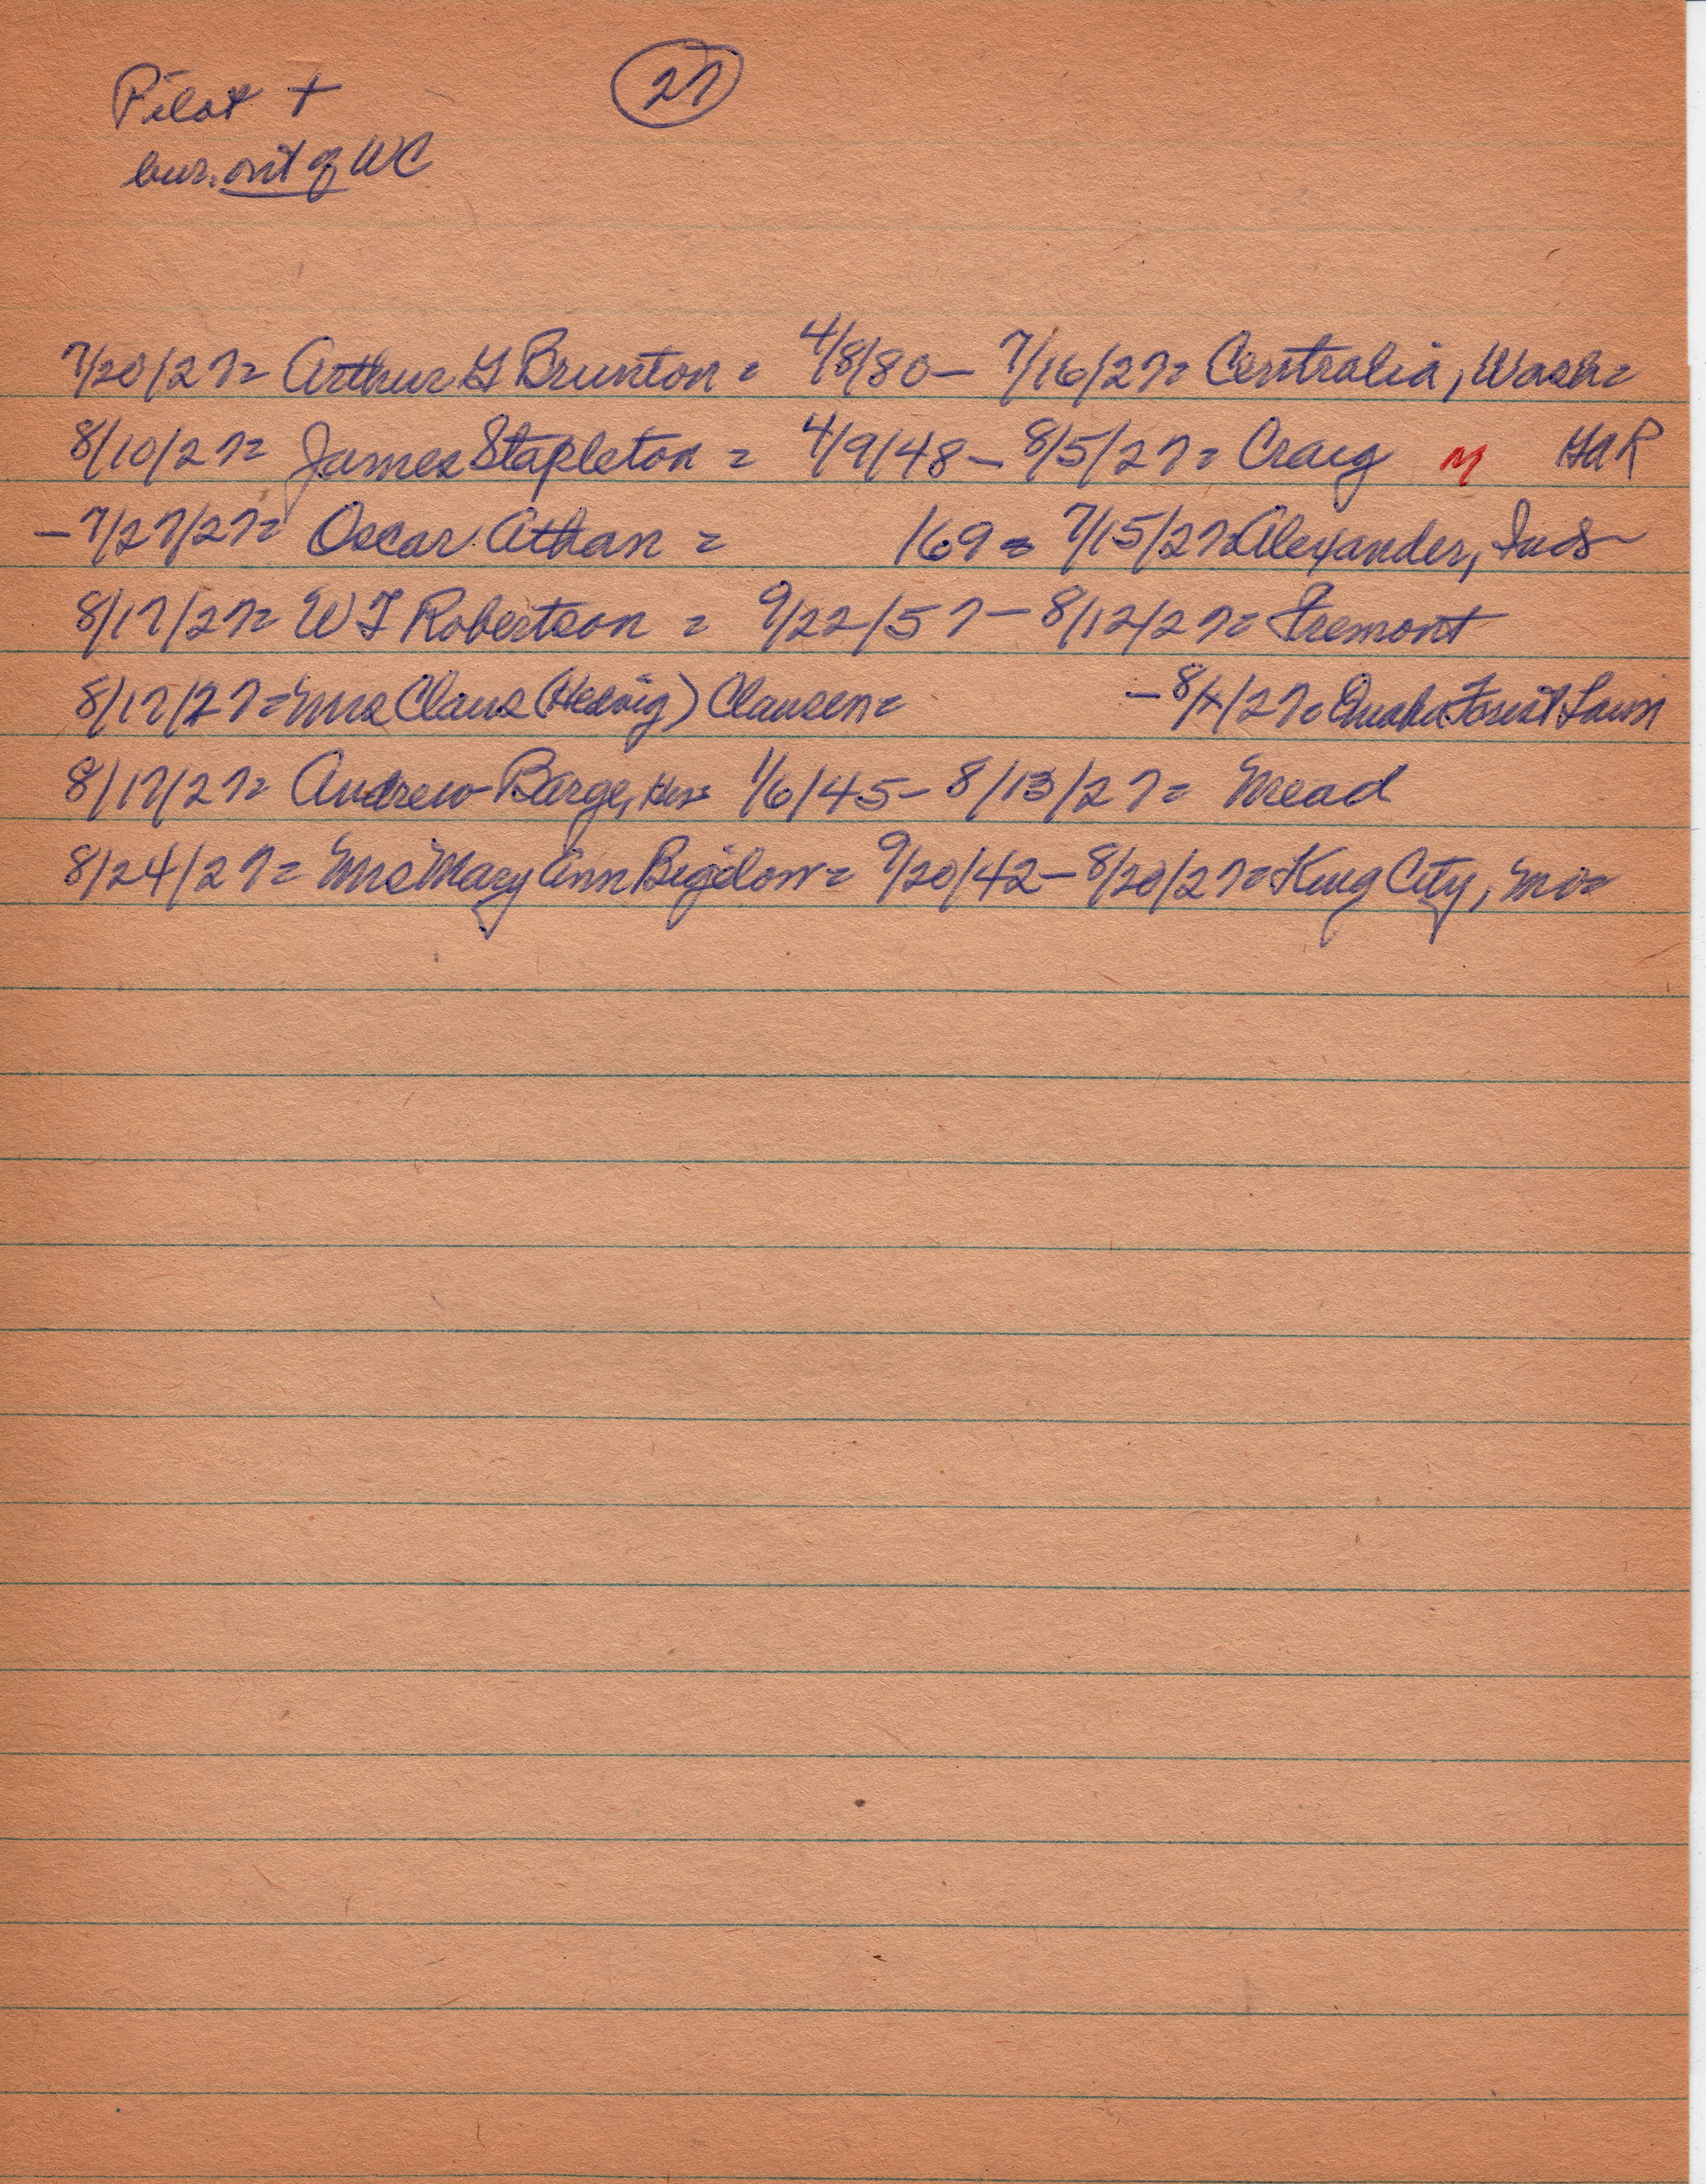 Pilot +
(27)
bur. out of WC
7/20/27= Arthur G Brunton = 4/8/80 - 7/16/27= Centralia, Wash=
8/10/27= James Stapleton = 4/9/48 - 8/5/27= Craig M GAR
-7/27/27= Oscar Athan = 169 = 7/15/27= Alexander, Inds
8/17/27= W F Robertson = 9/22/57 - 8/12/27= Fremont
8/17/27= Mrs Claus (Hedvig) Clausen= - 8/ /27= Omaha Forest Lawn
8/17/27= Andrew Barge, 1/6/45 - 8/13/27= Mead
8/24/27= Mrs Mary Ann Bigelow= 9/20/42 - 8/20/27= King City, Mo=